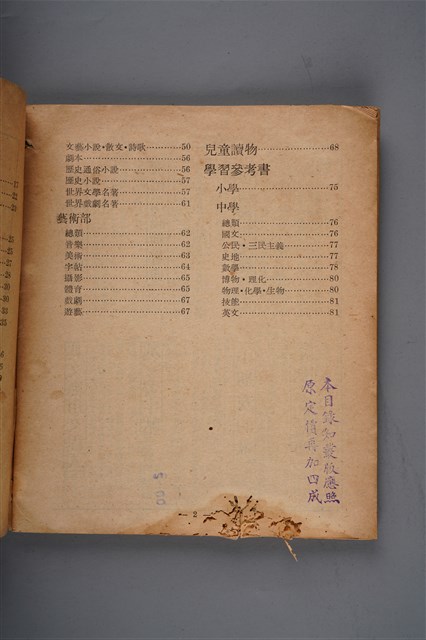 文藝小說・散文・詩歌……………50
劇本……………56
歷史通俗小說……………56
歷史小說……………57
世界文學名著……………57
世界戲劇名著……………61
藝術部
總類……………62
音樂……………62
美術……………63
字帖……………64
攝影……………65
體育……………65
戲劇……………67
游藝……………67
兒童讀物……………68
學習參考書
小學……………75
中學
總類……………76
國文……………76
公民・三民主義……………77
史地……………77
數學……………78
博物・理化……………80
物理・化學・生物……………80
技能……………81
英文……………81
本目錄如發版應照
原定價再加四成
— 2